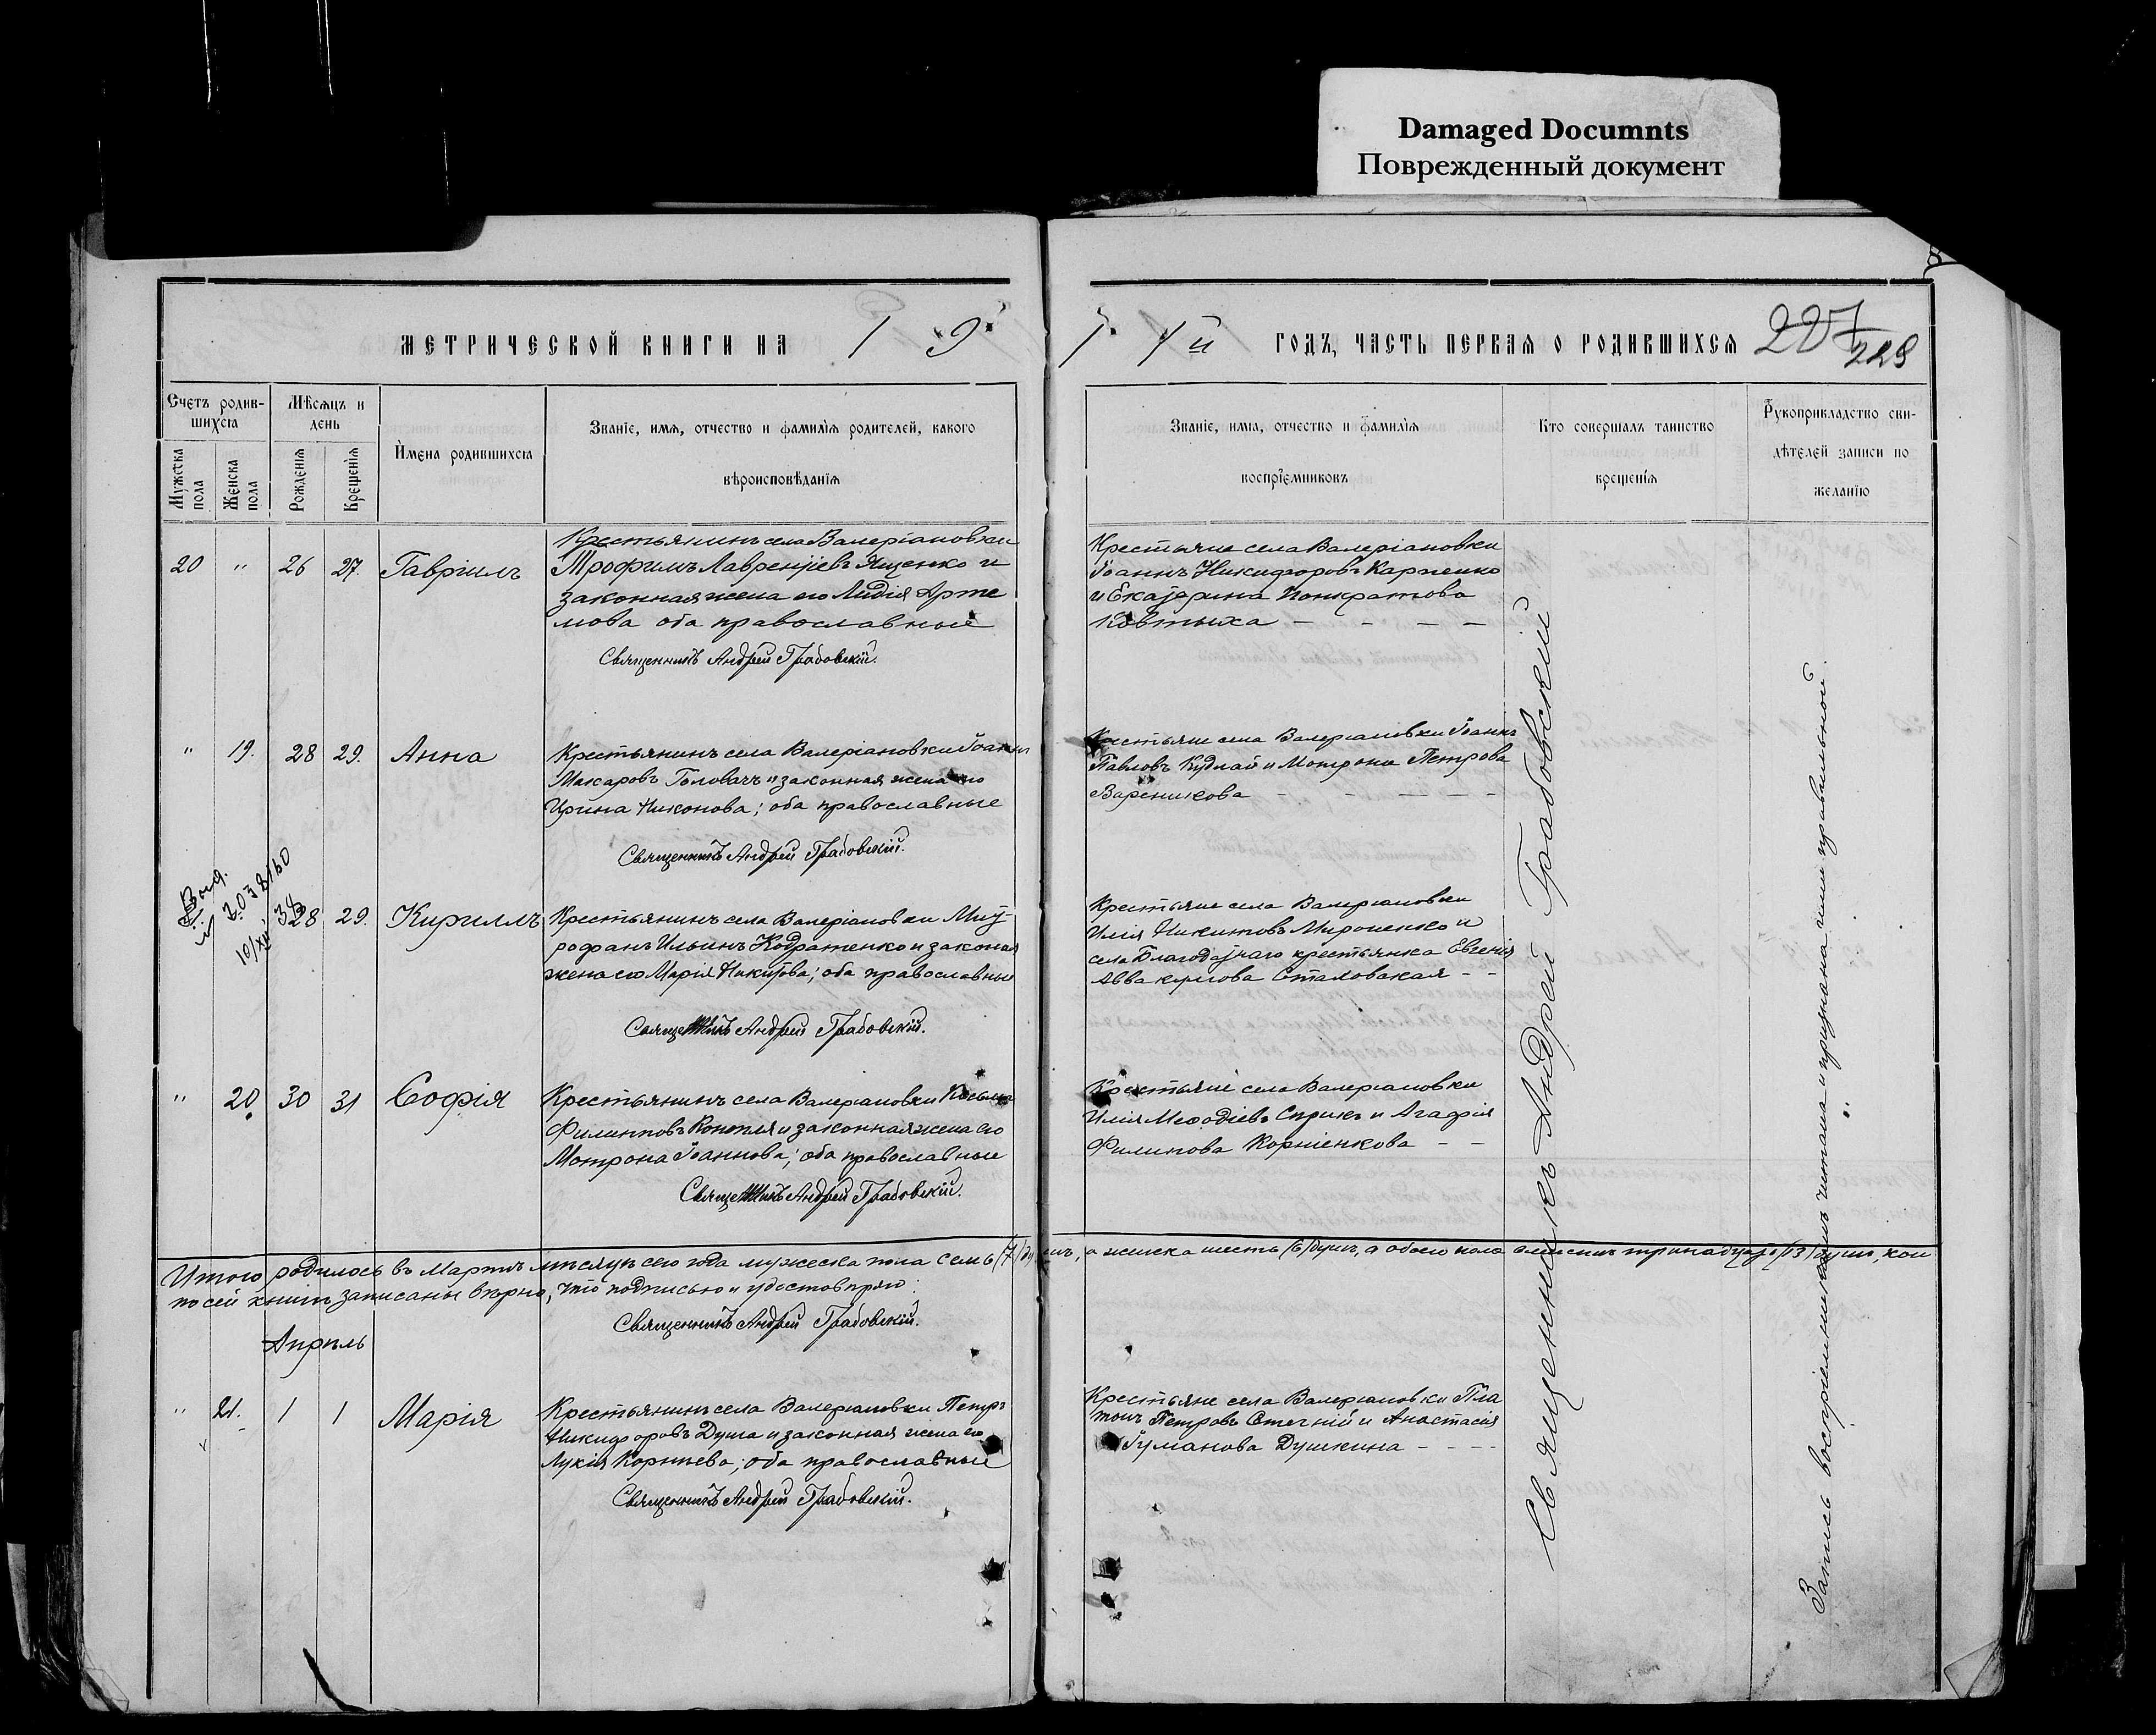 Damaged Documnts
Поврежденный документ
МЕТРИЧЕСКОЙ КНИГИ НА 1 9
1 4й ГОДЪ, ЧАСТЬ ПЕРВАЯ О РОДИВШИХСЯ
227
229
Счетъ родив-
шихся
Мужска
пола
Женска
пола
Мѣсяцъ и
день
Рожденія
Крещенія
Имена родившихся
Званіе, имя, отчество и фамилія родителей, какого
вѣроисповѣданія
Званіе, имя, отчество и фамилія
воспріемниковъ
Кто совершалъ таинство
крещенія
Рукоприкладство сви-
дѣтелей записи по
желанію
20 " 26 27. Гавріилъ
Крестьянинъ села Валеріановки
Трофимъ Лаврентіевъ Ященко и
законная жена его Лидія Арте
мова оба православные
Священникъ Андрей Грабовскій.
Крестьяне села Валеріановки
Іоаннъ Никифоровъ Карпенко
и Екатерина Понкратова
Ковтыха
" 19. 28 29. Анна
Крестьянинъ села Валеріановки Іоаннъ
Макаровъ Головачъ и законная жена его
Ирина Никонова; оба православные
Священникъ Андрей Грабовскій.
Крестьяне села Валеріановки Іоаннъ
Павловъ Кудлай и Мотрона Петрова
Вареникова
28 29. Кириллъ
Крестьянинъ села Валеріановки Мит-
рофанъ Ильинъ Кодратенко и законая
жена его Марія Никитова; оба православные
Священникъ Андрей Грабовскій.
Крестьяне села Валеріановки
Илія Никитовъ Мироненко и
села Благодатнаго крестьянка Евгенія
Аввакумова Сталовская
" 20 30 31 Софія
Крестьянинъ села Валеріановки Косьма
Филипповъ Коптля и законная жена его
Мотрона Іоаннова; оба православные
Священникъ Андрей Грабовскій.
Крестьяне села Валеріановки
Илія Меѳодіевъ Сприкъ и Агафія
Филипова Корніенкова
Итого родилось въ Мартѣ мѣсяцѣ сего года мужеска пола семь (7) душъ, а женска шесть (6) душъ, а обоего пола вмѣстѣ тринадцать (13) душъ, кои
по сей книгѣ записаны вѣрно, что подписью и удостовѣряю:
Священникъ Андрей Грабовскій.
Апрѣль
" 21. 1 1 Марія
Крестьянинъ села Валеріановки Петръ
Никифоровъ Душа и законная жена его
Лукія Корнѣева; оба православные
Священникъ Андрей Грабовскій.
Крестьяне села Валеріановки Пла
тонъ Петровъ Стегній и Анастасія
Гуманова Душкина
Священникъ Андрей Грабовскій
Запись воспріемникамъ читана и признана ими правильной.